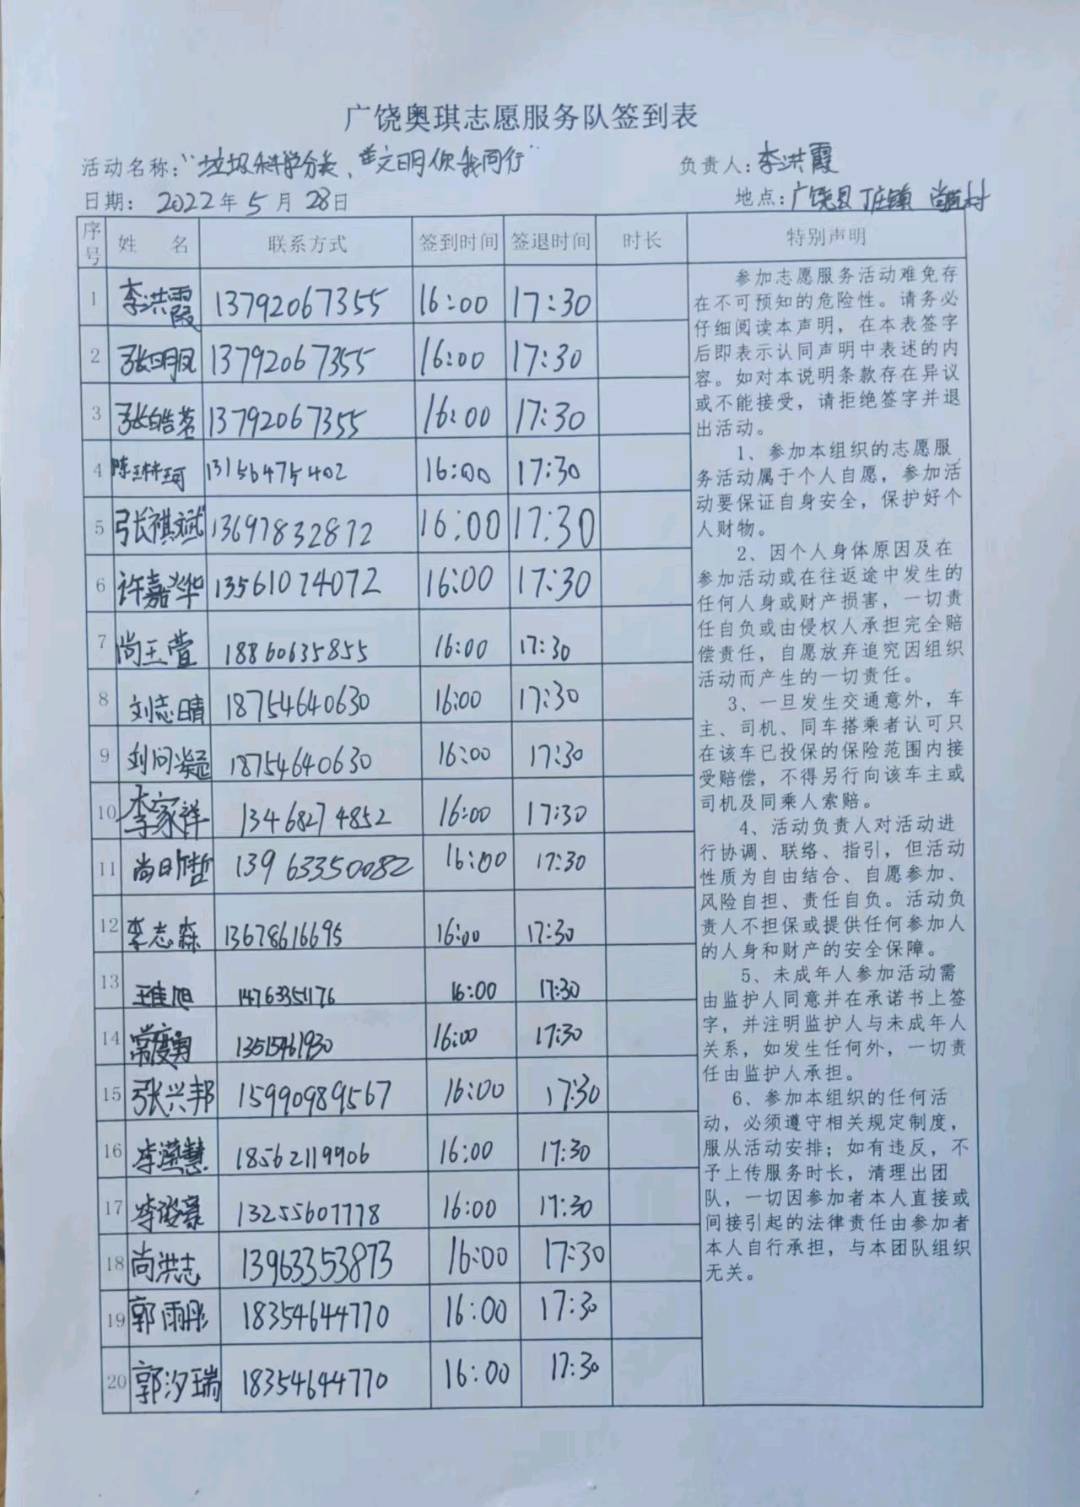 广饶奥琪志愿服务队签到表
活动名称:“垃圾科学分类、文明你我同行” 负责人:李洪霞
日期: 2022年5月28日 地点:广饶县丁庄镇 村
序号 姓 名 联系方式 签到时间 签退时间 时长 特别声明
1 李洪霞 13792067355 16:00 17:30
2 张明凤 13792067355 16:00 17:30
3 张皓茗 13792067355 16:00 17:30
4 陈琳珂 13156475402 16:00 17:30
5 张祺斌 13697832872 16:00 17:30
6 许嘉华 13561074072 16:00 17:30
7 尚王萱 18860635855 16:00 17:30
8 刘志晴 18754640630 16:00 17:30
9 刘问凝 18754640630 16:00 17:30
10 李家祥 13468274852 16:00 17:30
11 尚 哲 13963350082 16:00 17:30
12 李志森 13678616695 16:00 17:30
13 王佳旭 14763351176 16:00 17:30
14 常 勇 13515461930 16:00 17:30
15 张兴邦 15990989567 16:00 17:30
16 李 慧 18562119906 16:00 17:30
17 李 豪 13255607778 16:00 17:30
18 尚洪志 13963353873 16:00 17:30
19 郭雨彤 18354644770 16:00 17:30
20 郭汐瑞 18354644770 16:00 17:30
参加志愿服务活动难免存
在不可预知的危险性。请务必
仔细阅读本声明，在本表签字
后即表示认同声明中表述的内
容。如对本说明条款存在异议
或不能接受，请拒绝签字并退
出活动。
1、参加本组织的志愿服
务活动属于个人自愿，参加活
动要保证自身安全，保护好个
人财物。
2、因个人身体原因及在
参加活动或在往返途中发生的
任何人身或财产损害，一切责
任自负或由侵权人承担完全赔
偿责任，自愿放弃追究因组织
活动而产生的一切责任。
3、一旦发生交通意外，车
主、司机、同车搭乘者认可只
在该车已投保的保险范围内接
受赔偿，不得另行向该车主或
司机及同乘人索赔。
4、活动负责人对活动进
行协调、联络、指引，但活动
性质为自由结合、自愿参加、
风险自担、责任自负。活动负
责人不担保或提供任何参加人
的人身和财产的安全保障。
5、未成年人参加活动需
由监护人同意并在承诺书上签
字，并注明监护人与未成年人
关系，如发生任何外，一切责
任由监护人承担。
6、参加本组织的任何活
动，必须遵守相关规定制度，
服从活动安排；如有违反，不
予上传服务时长，清理出团
队，一切因参加者本人直接或
间接引起的法律责任由参加者
本人自行承担，与本团队组织
无关。